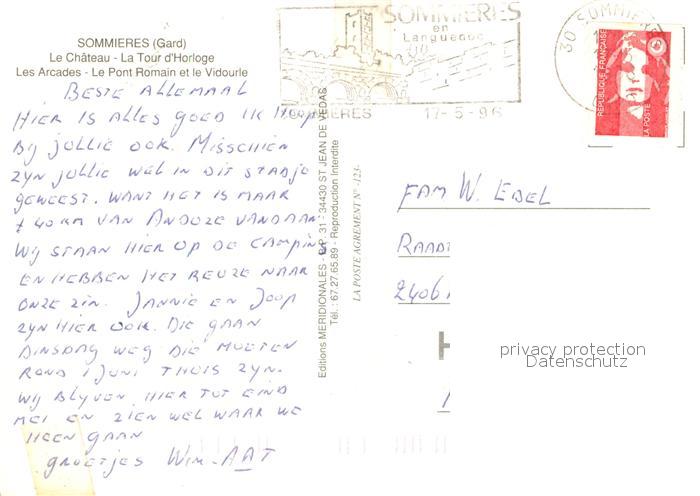 SOMMIERES (Gard)
Le Château - La Tour d'Horloge
Les Arcades - Le Pont Romain et le Vidourle
BESTE ALLEMAAL
HIER IS ALLES GOED IK HOOP
BIJ JULLIE OOK. MISSCHIEN
ZYN JULLIE WEL IN DIT STADJE
GEWEEST. WANT HET IS MAAR
± 40 KM VAN ANDUZE VANDAAN
WIJ STAAN HIER OP DE CAMPING
EN HEBBEN HET REUZE NAAR
ONZE ZIN. JANNIE EN JOOP
ZYN HIER OOK. DIE GAAN
DINSDAG WEG DIE MOETEN
ROND 1 JUNI THUIS ZYN.
WIJ BLYVEN HIER TOT EIND
MEI EN ZIEN WEL WAAR WE
HEEN GAAN
GROETJES WIM-AAT
Editions MERIDIONALES - B.P. 31 - 34430 ST JEAN DE VEDAS
Tél. : 67.27.65.89 - Reproduction Interdite
LA POSTE AGREMENT N° -123-
SOMMIERES
en
Languedoc
SOMMIERES 17-5-96
30 SOMMIERES
REPUBLIQUE FRANÇAISE
LA POSTE
FAM W. EBEL
RAADH
2406
privacy protection
Datenschutz